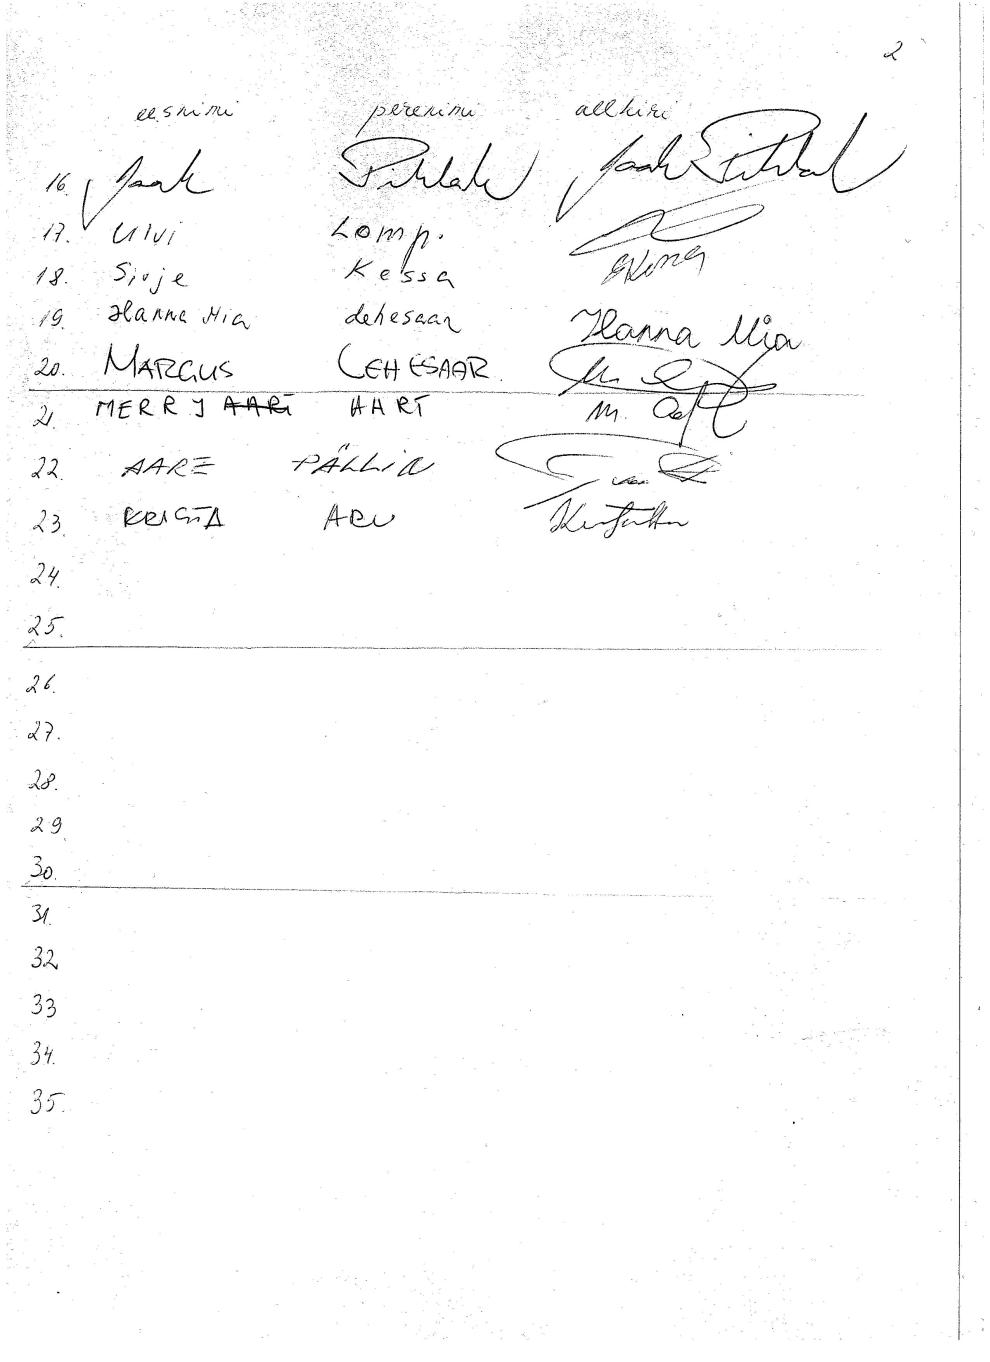 2
eesnimi perenimi allkiri
16. Jaak Pihlak Jaak Pihlak
17. Ulvi Lomp.
18. Sirje Kessa
19. Hanna Mia Lehesaar Hanna Mia
20. MARGUS LEHESAAR
21. MERRY AART AART M.
22. AARE PÄLLIN
23. KRISTA ARU
24.
25.
26.
27.
28.
29
30.
31.
32
33
34.
35.